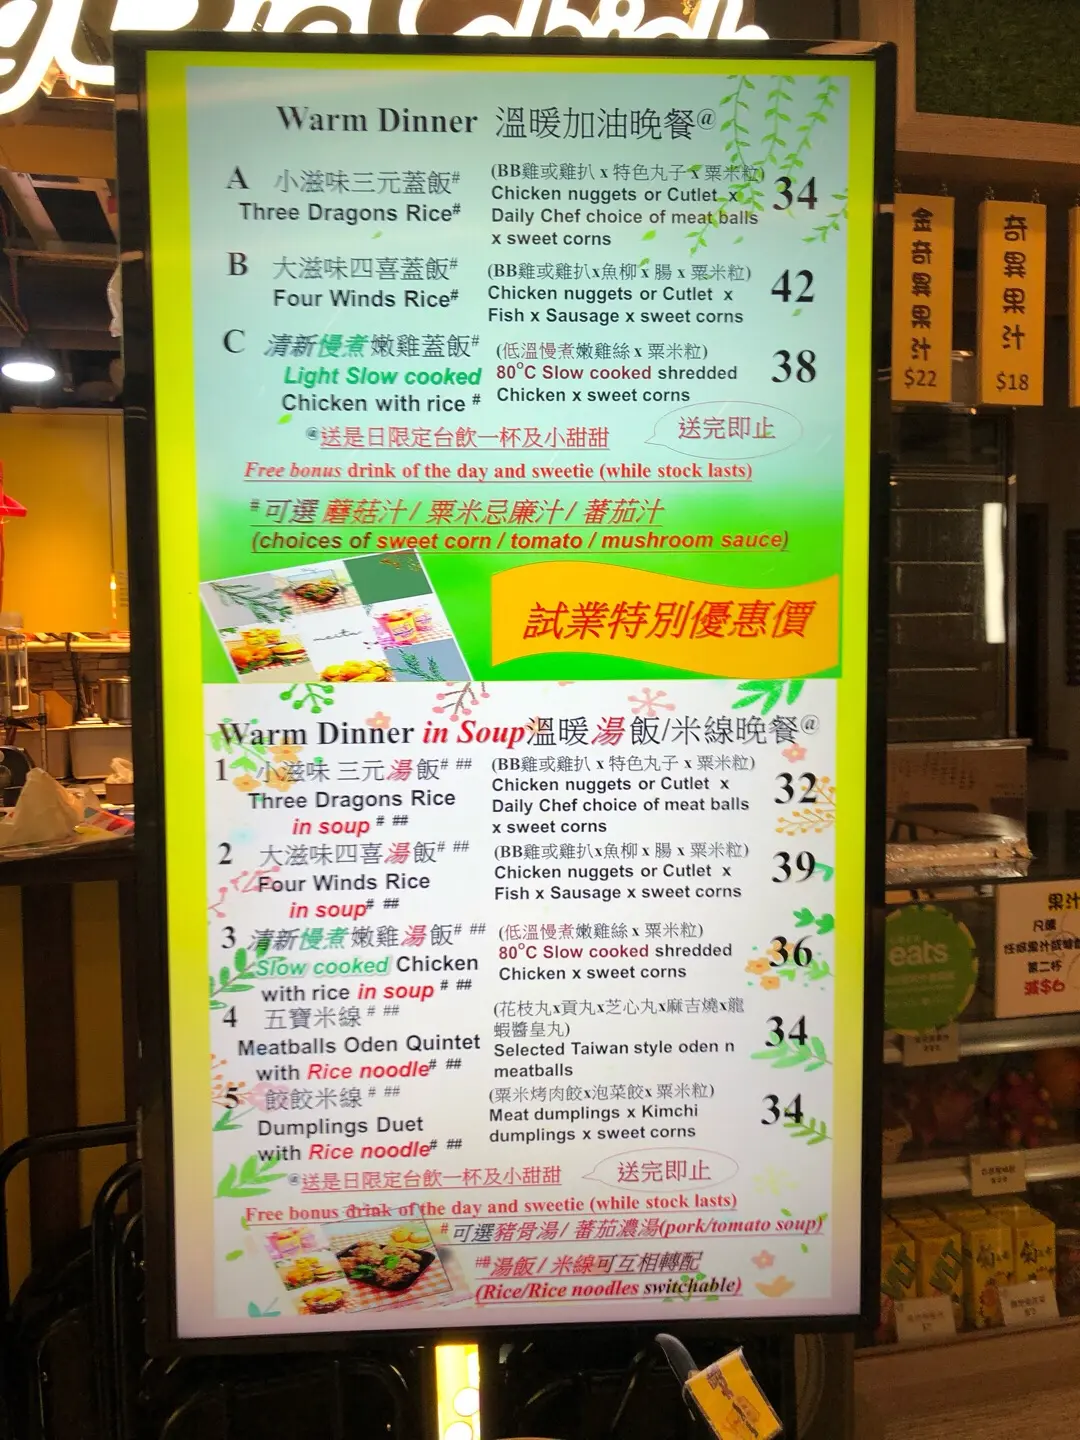 Warm Dinner 溫暖加油晚餐@
A 小滋味三元蓋飯#
Three Dragons Rice#
(BB雞或雞扒 x 特色丸子 x 粟米粒)
Chicken nuggets or Cutlet x
Daily Chef choice of meat balls
x sweet corns
34
B 大滋味四喜蓋飯#
Four Winds Rice#
(BB雞或雞扒x魚柳 x 腸 x 粟米粒)
Chicken nuggets or Cutlet x
Fish x Sausage x sweet corns
42
C 清新慢煮嫩雞蓋飯#
Light Slow cooked
Chicken with rice #
(低溫慢煮嫩雞絲 x 粟米粒)
80°C Slow cooked shredded
Chicken x sweet corns
38
@送是日限定台飲一杯及小甜甜
送完即止
Free bonus drink of the day and sweetie (while stock lasts)
#可選 蘑菇汁 / 粟米忌廉汁 / 蕃茄汁
(choices of sweet corn / tomato / mushroom sauce)
試業特別優惠價
Warm Dinner in Soup溫暖湯飯/米線晚餐@
1 小滋味 三元湯飯# ##
Three Dragons Rice
in soup # ##
(BB雞或雞扒 x 特色丸子 x 粟米粒)
Chicken nuggets or Cutlet x
Daily Chef choice of meat balls
x sweet corns
32
2 大滋味四喜湯飯# ##
Four Winds Rice
in soup# ##
(BB雞或雞扒x魚柳 x 腸 x 粟米粒)
Chicken nuggets or Cutlet x
Fish x Sausage x sweet corns
39
3 清新慢煮嫩雞湯飯# ##
Slow cooked Chicken
with rice in soup # ##
(低溫慢煮嫩雞絲 x 粟米粒)
80°C Slow cooked shredded
Chicken x sweet corns
36
4 五寶米線 # ##
Meatballs Oden Quintet
with Rice noodle# ##
(花枝丸x貢丸x芝心丸x麻吉燒x龍
蝦醬皇丸)
Selected Taiwan style oden n
meatballs
34
5 餃餃米線 # ##
Dumplings Duet
with Rice noodle# ##
(粟米烤肉餃x泡菜餃x 粟米粒)
Meat dumplings x Kimchi
dumplings x sweet corns
34
@送是日限定台飲一杯及小甜甜
送完即止
Free bonus drink of the day and sweetie (while stock lasts)
#可選豬骨湯/ 蕃茄濃湯(pork/tomato soup)
##湯飯/ 米線可互相轉配
(Rice/Rice noodles switchable)
金奇異果汁
$22
奇異果汁
$18
eats
果汁
第二杯
減$6
VLT